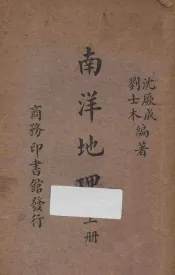 沈厥成
劉士木 編著
南洋地理 上册
商務印書館發行